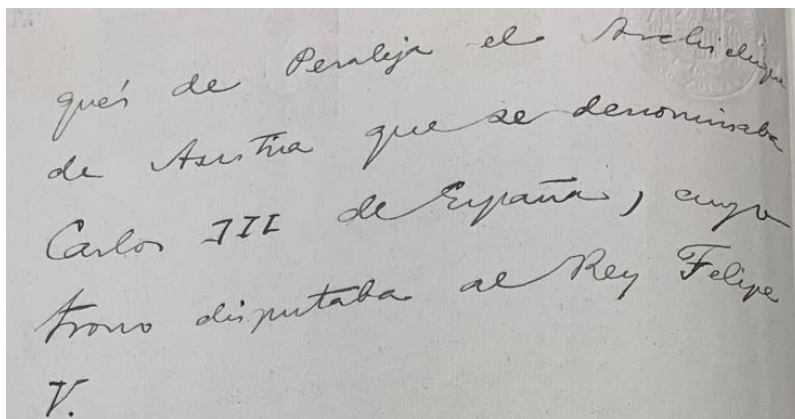 qués de Peraleja el Archiduque
de Austria que se denominaba
Carlos III de España, cuyo
trono disputaba al Rey Felipe
V.